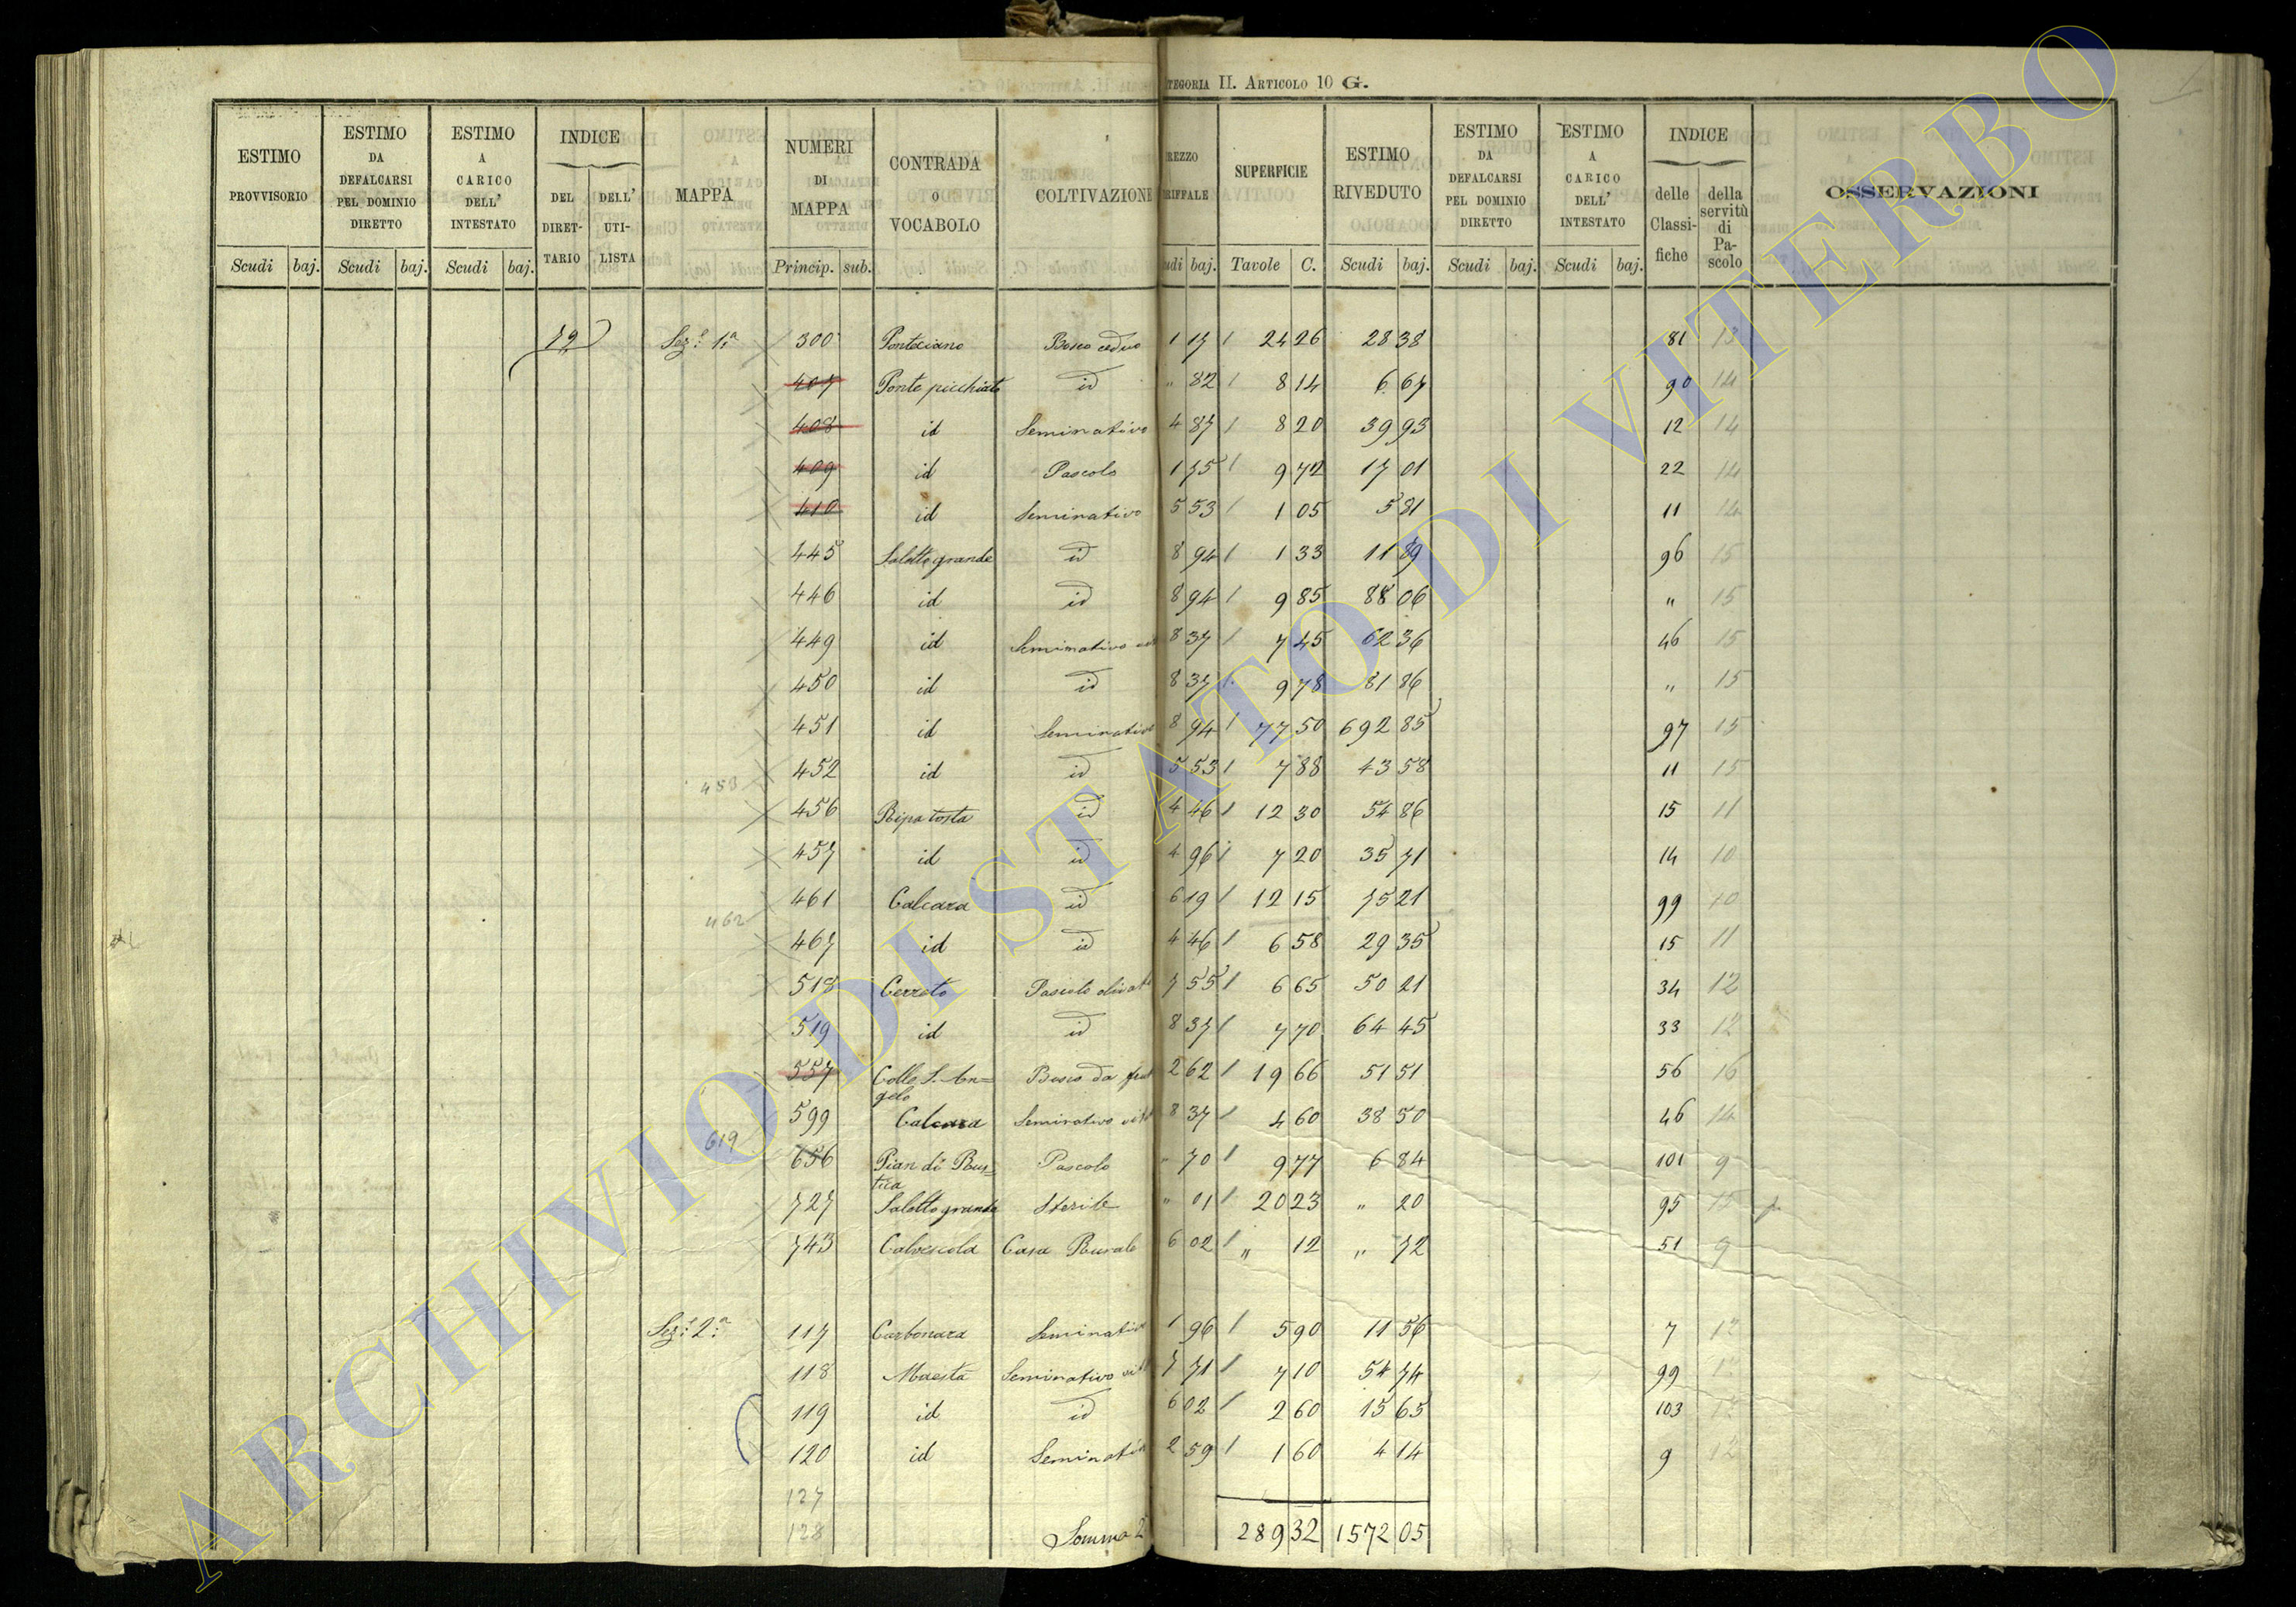 CATEGORIA II. ARTICOLO 10 G.
ESTIMO PROVVISORIO Scudi baj. | ESTIMO DA DEFALCARSI PEL DOMINIO DIRETTO Scudi baj. | ESTIMO A CARICO DELL' INTESTATO Scudi baj. | INDICE DEL DIRETTARIO DELL' UTILISTA | MAPPA | NUMERI DI MAPPA Princip. sub. | CONTRADA O VOCABOLO | COLTIVAZIONE | REZZO RIFFALE udi baj. | SUPERFICIE Tavole C. | ESTIMO RIVEDUTO Scudi baj. | ESTIMO DA DEFALCARSI PEL DOMINIO DIRETTO Scudi baj. | ESTIMO A CARICO DELL' INTESTATO Scudi baj. | INDICE delle Classifiche della servitù di Pascolo | OSSERVAZIONI
72 Sez.e 1.a 300 Ponteciano Bosco ceduo 1 17 24 26 28 38 81 13
407 Ponte picchiato id " 82 8 14 6 67 90 14
408 id Seminativo 4 87 8 20 39 93 12 14
409 id Pascolo 1 75 9 72 17 01 22 14
410 id Seminativo 5 53 1 05 5 81 11 14
445 Saletto grande id 8 94 1 33 11 89 96 15
446 id id 8 94 9 85 88 06 " 15
449 id Seminativo vit 8 37 7 45 62 36 46 15
450 id id 8 37 9 78 81 86 " 15
451 id Seminativo 8 94 77 50 692 85 97 15
452 id id 5 53 7 88 43 58 11 15
453
456 Ripa tosta id 4 46 12 30 54 86 15 11
457 id id 4 96 7 20 35 71 14 10
461 Calcara id 6 19 12 15 75 21 99 10
462
467 id id 4 46 6 58 29 35 15 11
518 Cerreto Pascolo olivato 7 55 6 65 50 21 34 12
519 id id 8 37 7 70 64 45 33 12
557 Colle S. Angelo Bosco da frut 2 62 19 66 51 51 56 16
599 Calcara Seminativo vit 8 37 4 60 38 50 46 14
619
656 Pian di Bustica Pascolo " 70 9 77 6 84 101 9
727 Saletto grande Sterile " 01 20 23 " 20 95 15
743 Calvescola Casa Rurale 6 02 " 12 " 72 51 9
Sez.e 2.a 117 Carbonara Seminativo 1 96 5 90 11 56 7 12
118 Maestà Seminativo vit 7 71 7 10 54 74 99 12
119 id id 6 02 2 60 15 65 103 12
120 id Seminativo 2 59 1 60 4 14 9 12
127
128 Somma 2 289 32 1572 05
ARCHIVIO DI STATO DI VITERBO